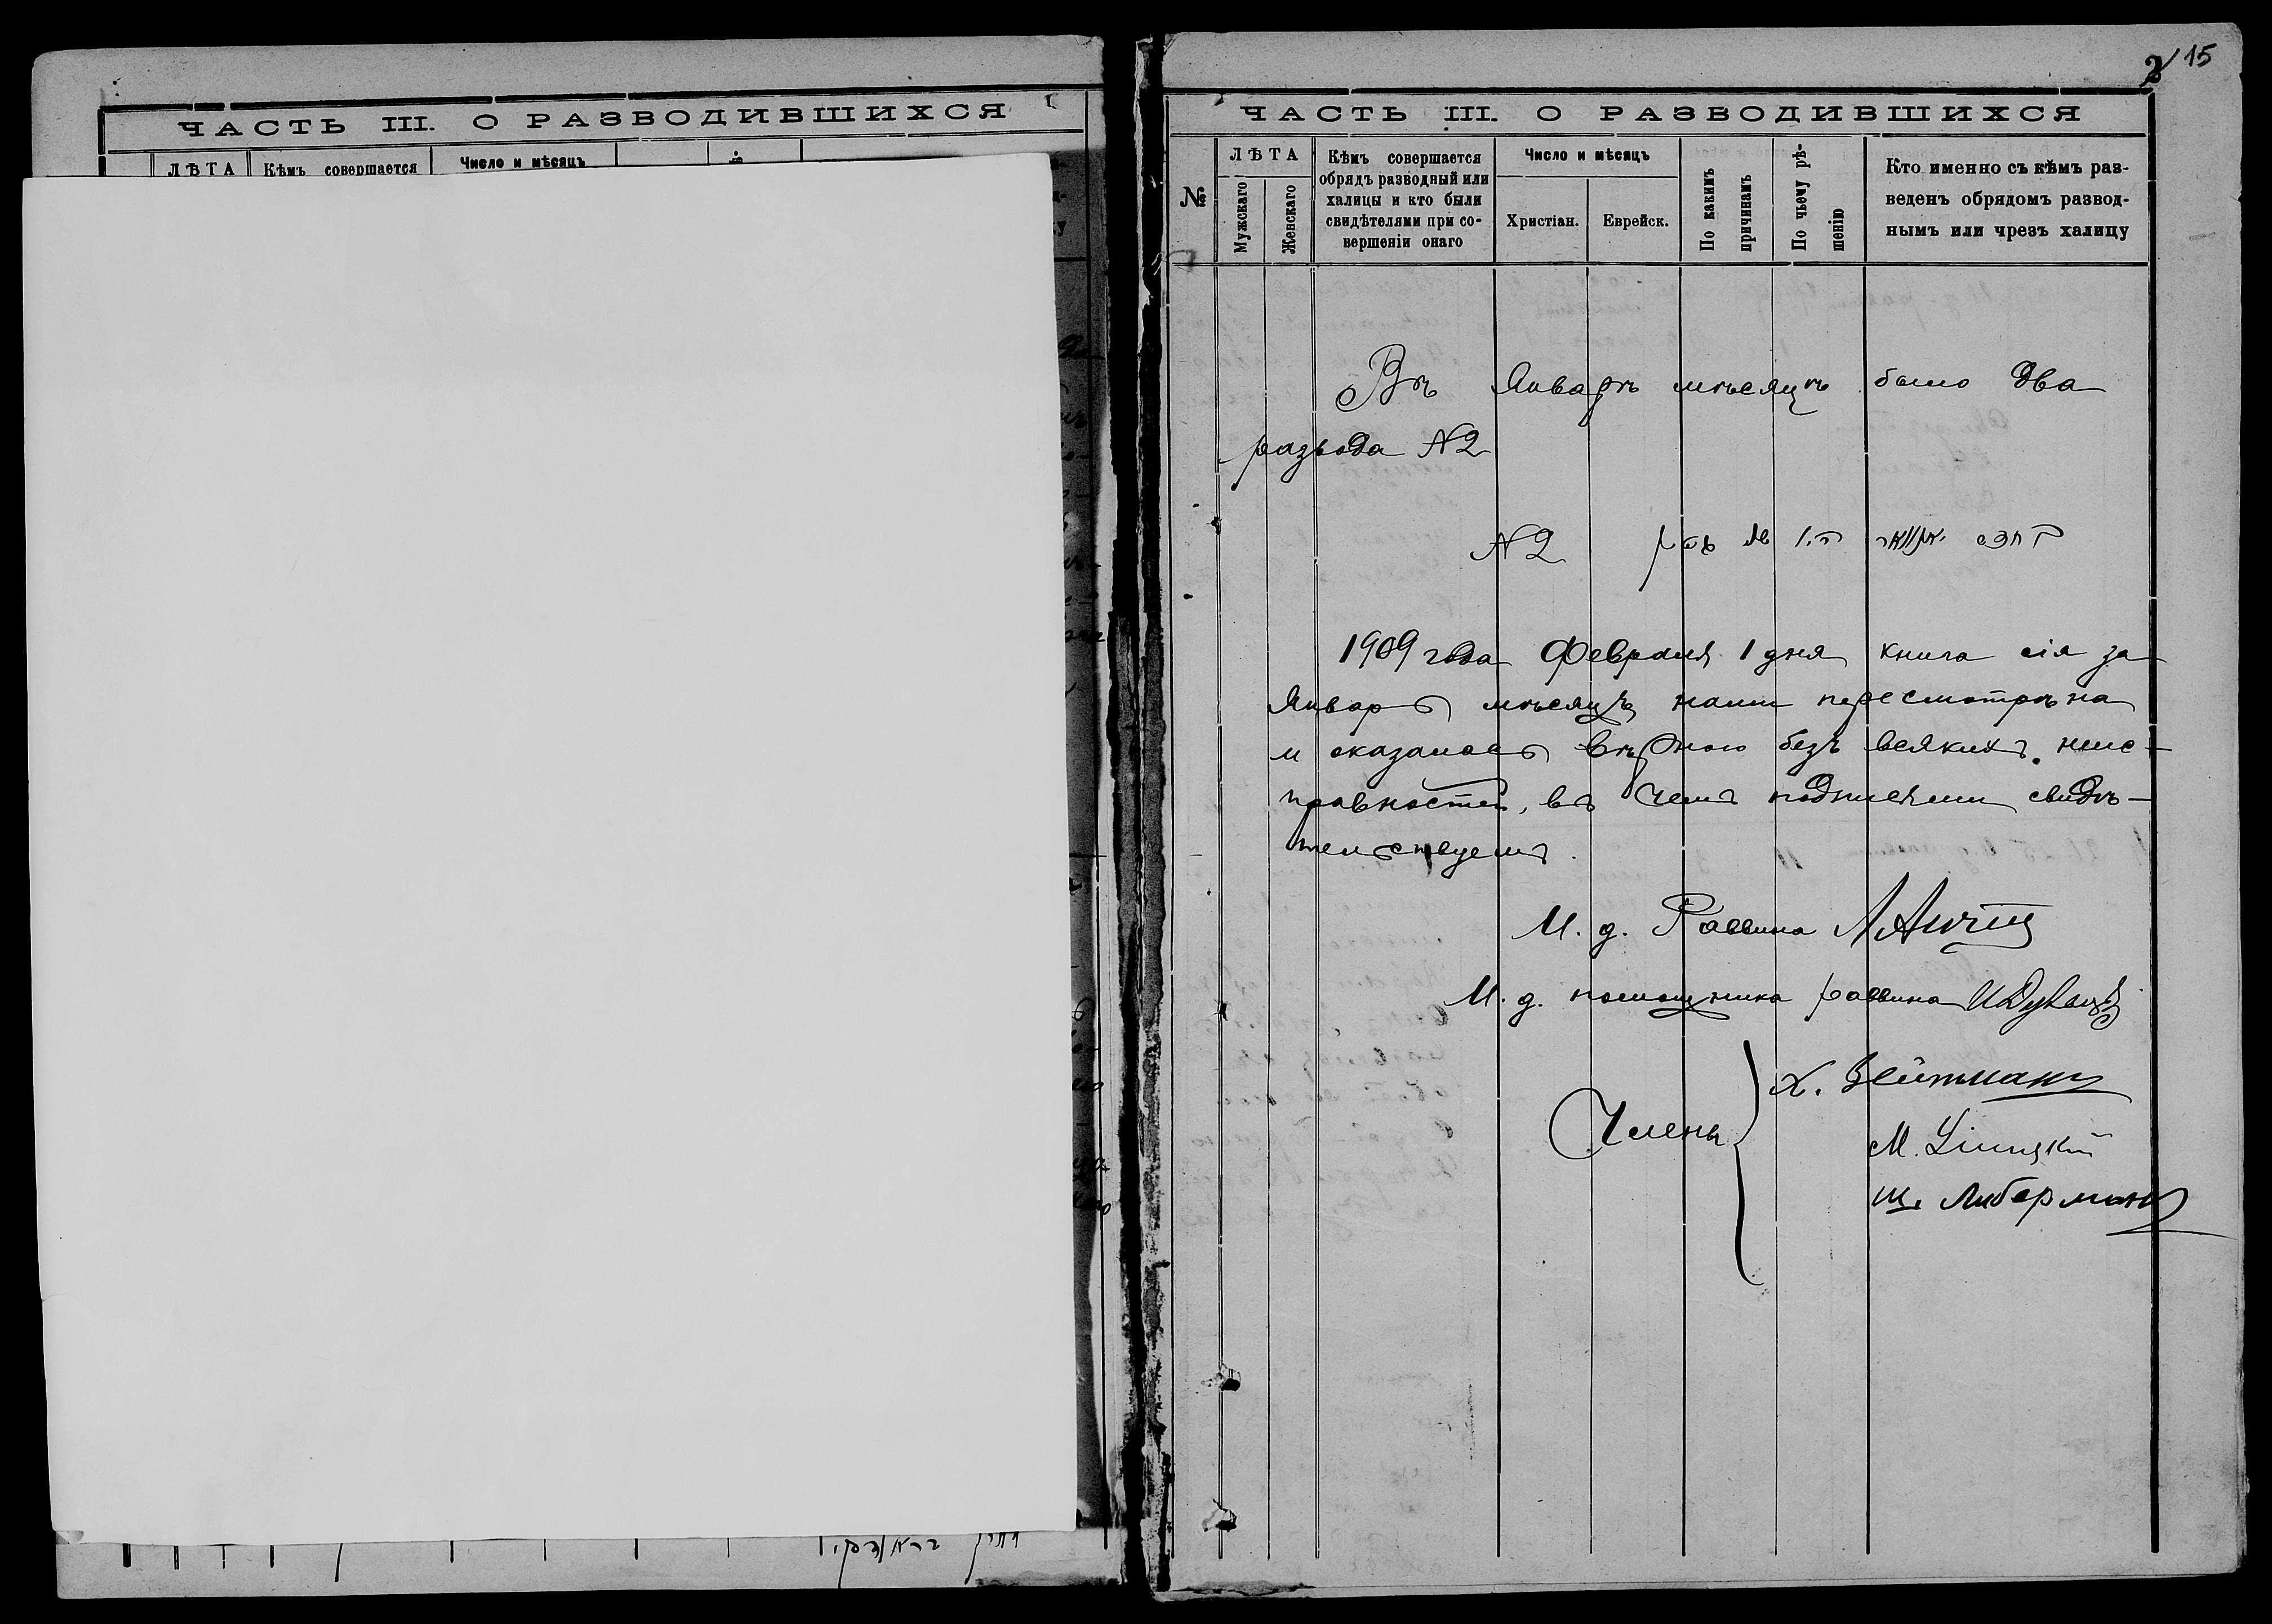 ЧАСТЬ III. О РАЗВОДИВШИХСЯ
ЛѢТА
Кѣмъ совершается
Число и мѣсяцъ
2 15
ЧАСТЬ III. О РАЗВОДИВШИХСЯ
№
ЛѢТА
Мужскаго
Женскаго
Кѣмъ совершается
обрядъ разводный или
халицы и кто были
свидѣтелями при со-
вершеніи онаго
Число и мѣсяцъ
Христіан.
Еврейск.
По какимъ
причинамъ
По чьему рѣ-
шенію
Кто именно съ кѣмъ раз-
веденъ обрядомъ развод-
нымъ или чрезъ халицу
Въ Январѣ мѣсяцѣ было два
развода №2
№2
1909 года Февраля 1 дня книга сія за
Январь мѣсяцъ нами пересмотрѣна
и оказалась вѣрною безъ всякихъ неис-
правностей, въ чемъ подписями свидѣ-
тельствуемъ.
И. д. Раввина
И. д. помощника раввина
Члены
Х. Вейтманъ
М.
Ш. Либерманъ